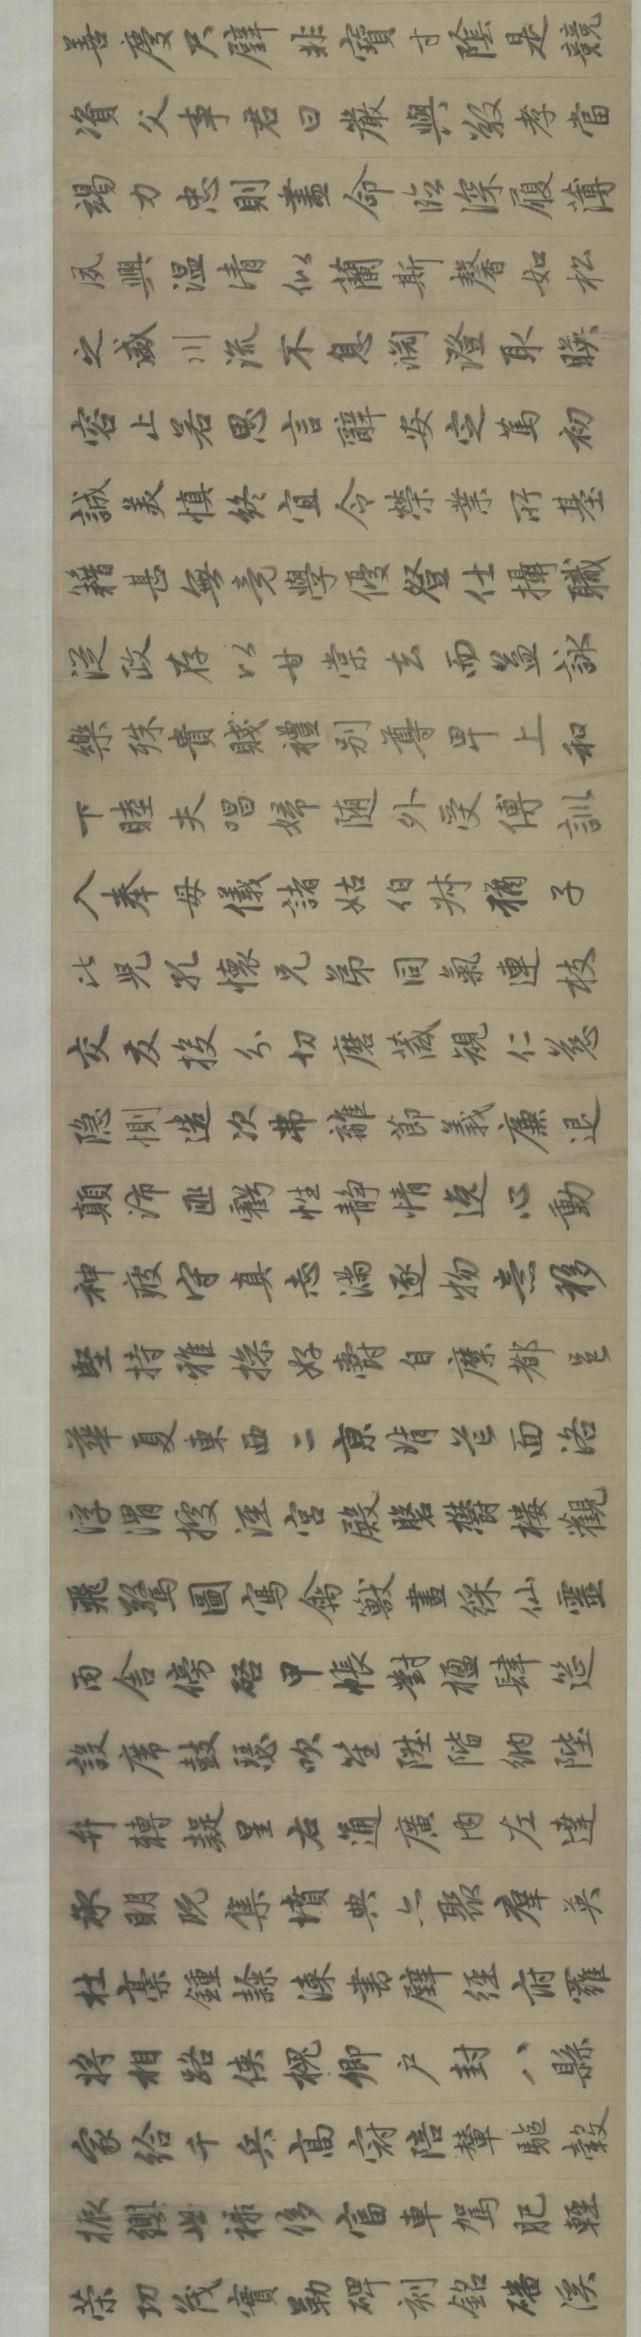 善慶尺璧非寶寸陰是競
資父事君曰嚴與敬孝當
竭力忠則盡命臨深履薄
夙興溫清似蘭斯馨如松
之盛川流不息淵澄取暎
容止若思言辭安定篤初
誠美慎終宜令榮業所基
籍甚無竟學優登仕攝職
從政存以甘棠去而益詠
樂殊貴賤禮別尊卑上和
下睦夫唱婦隨外受傅訓
入奉母儀諸姑伯叔猶子
比兒孔懷兄弟同氣連枝
交友投分切磨箴規仁慈
隱惻造次弗離節義廉退
顛沛匪虧性靜情逸心動
神疲守真志滿逐物意移
堅持雅操好爵自縻都邑
華夏東西二京背芒面洛
浮渭據涇宮殿盤鬱樓觀
飛驚圖寫禽獸畫綵仙靈
丙舍傍啓甲帳對楹肆筵
設席鼓瑟吹笙陞階納陛
弁轉疑星右通廣內左達
承明既集墳典亦聚群英
杜稾鍾隸漆書壁經府羅
將相路俠槐卿戶封八縣
家給千兵高冠陪輦驅轂
振纓世祿侈富車駕肥輕
策功茂實勒碑刻銘磻溪